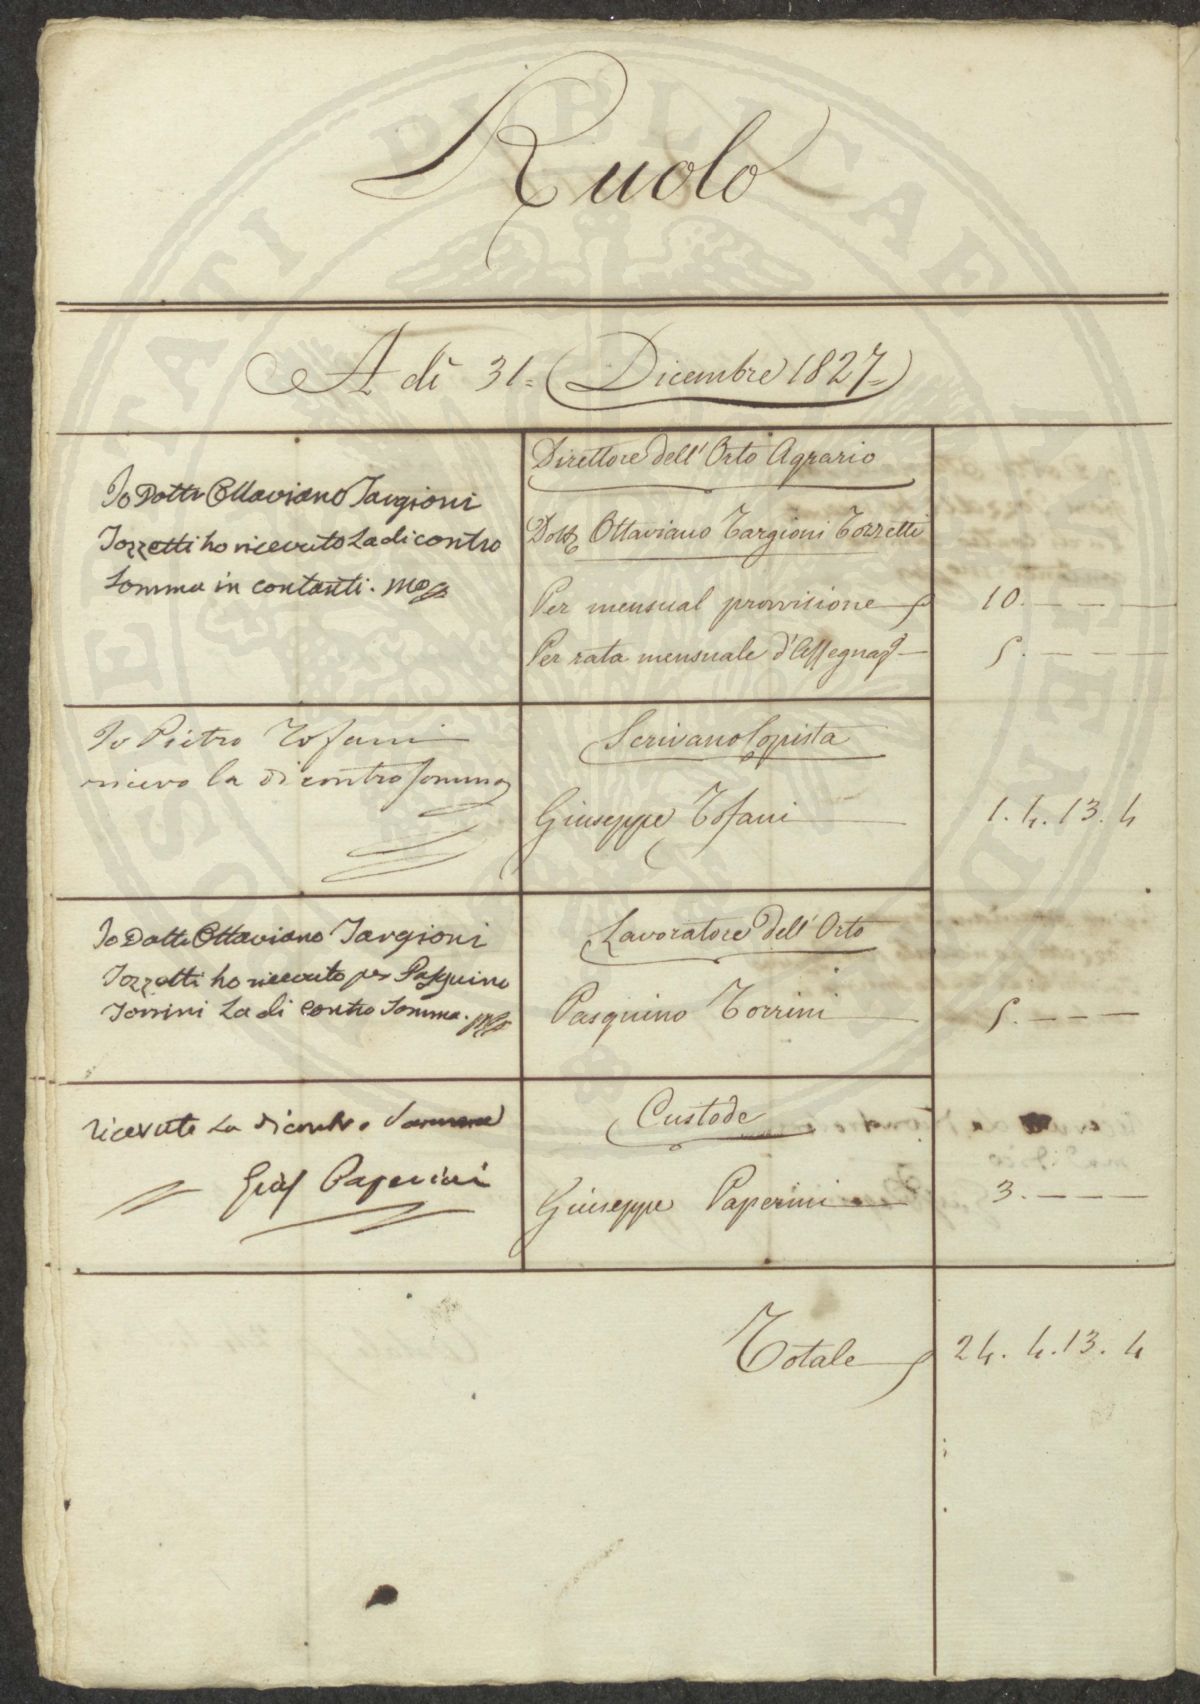 Ruolo
A dì 31= Dicembre 1827=
Io Dottr Ottaviano Targioni
Tozzetti ho ricevuto La di contro
Somma in contanti. mo pp
Direttore dell' Orto Agrario
Dott. Ottaviano Targioni Tozzetti
Per mensual provvisione 10. — — —
Per rata mensuale d'Assegnao 5. — — —
Io Pietro Tofani
ricevo la di contro somma
Scrivano Copista
Giuseppe Tofani 1. 4. 13. 4
Io Dottr Ottaviano Targioni
Tozzetti ho ricevuto per Pasquino
Torrini La di contro Somma.
Lavoratore dell' Orto
Pasquino Torrini 5. — — —
ricevuto La di contro Somma
Gius Paperini
Custode
Giuseppe Paperini 3. — — —
Totale 24. 4. 13. 4